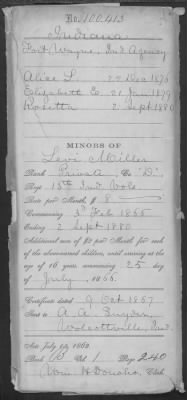 No. 100,413
Indiana
Fort Wayne, Ind Agency
Alice L. 22 Dec 1876
Elizabeth E. 21 Jan 1879
Rosetta 2 Sept 1880
MINORS OF
Levi Miller
Rank Private, Co "D"
Regt 13th Ind Vols
Rate per Month, $ 8
Commencing 3d Feb 1865
Ending 2 Sept 1880
Additional sum of $2 per Month for each
of the above-named children, until arriving at the
age of 16 years, commencing 25 day
of July, 1866.
Certificate dated 9 Oct 1867
Sent to A. A.
Wolcottville, Ind.
Act July 14, 1862.
Book Vol 1 Page 240
Wm H Donoho, Clerk